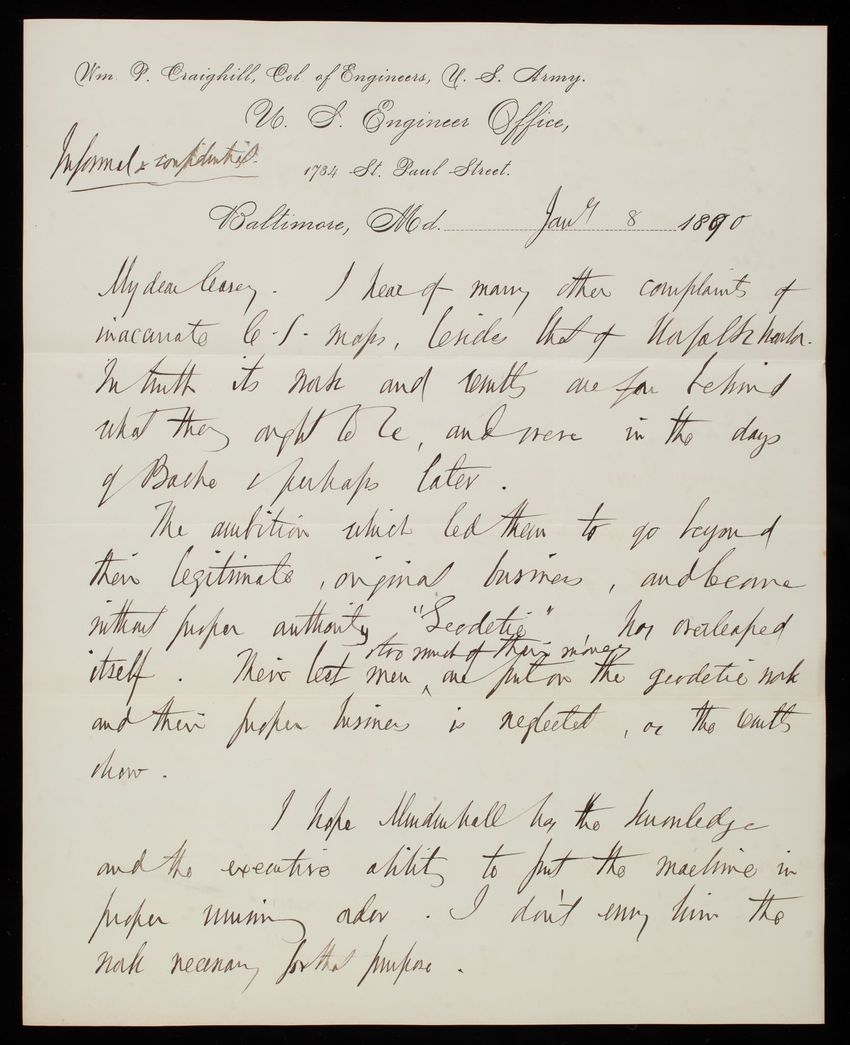 Wm. P. Craighill, Col of Engineers, U. S. Army.
U. S. Engineer Office,
Informal & confidential.
1734 St. Paul Street.
Baltimore, Md. Jany 8 1890
My dear Casey. I hear of many other complaints of
inaccurate C. S. maps, besides that of Norfolk harbor.
In truth its work and results are far behind
what they ought to be, and were in the days
of Bache & perhaps later.
The ambition which led them to go beyond
their legitimate, original business, and become
without proper authority "Geodetic" has overleaped
& too much of their money
itself. Their best men ^ are put on the geodetic work
and their proper business is neglected, as the results
show.
I hope Mendenhall has the knowledge
and the executive ability to put the machine in
proper running order. I don't envy him the
work necessary for that purpose.